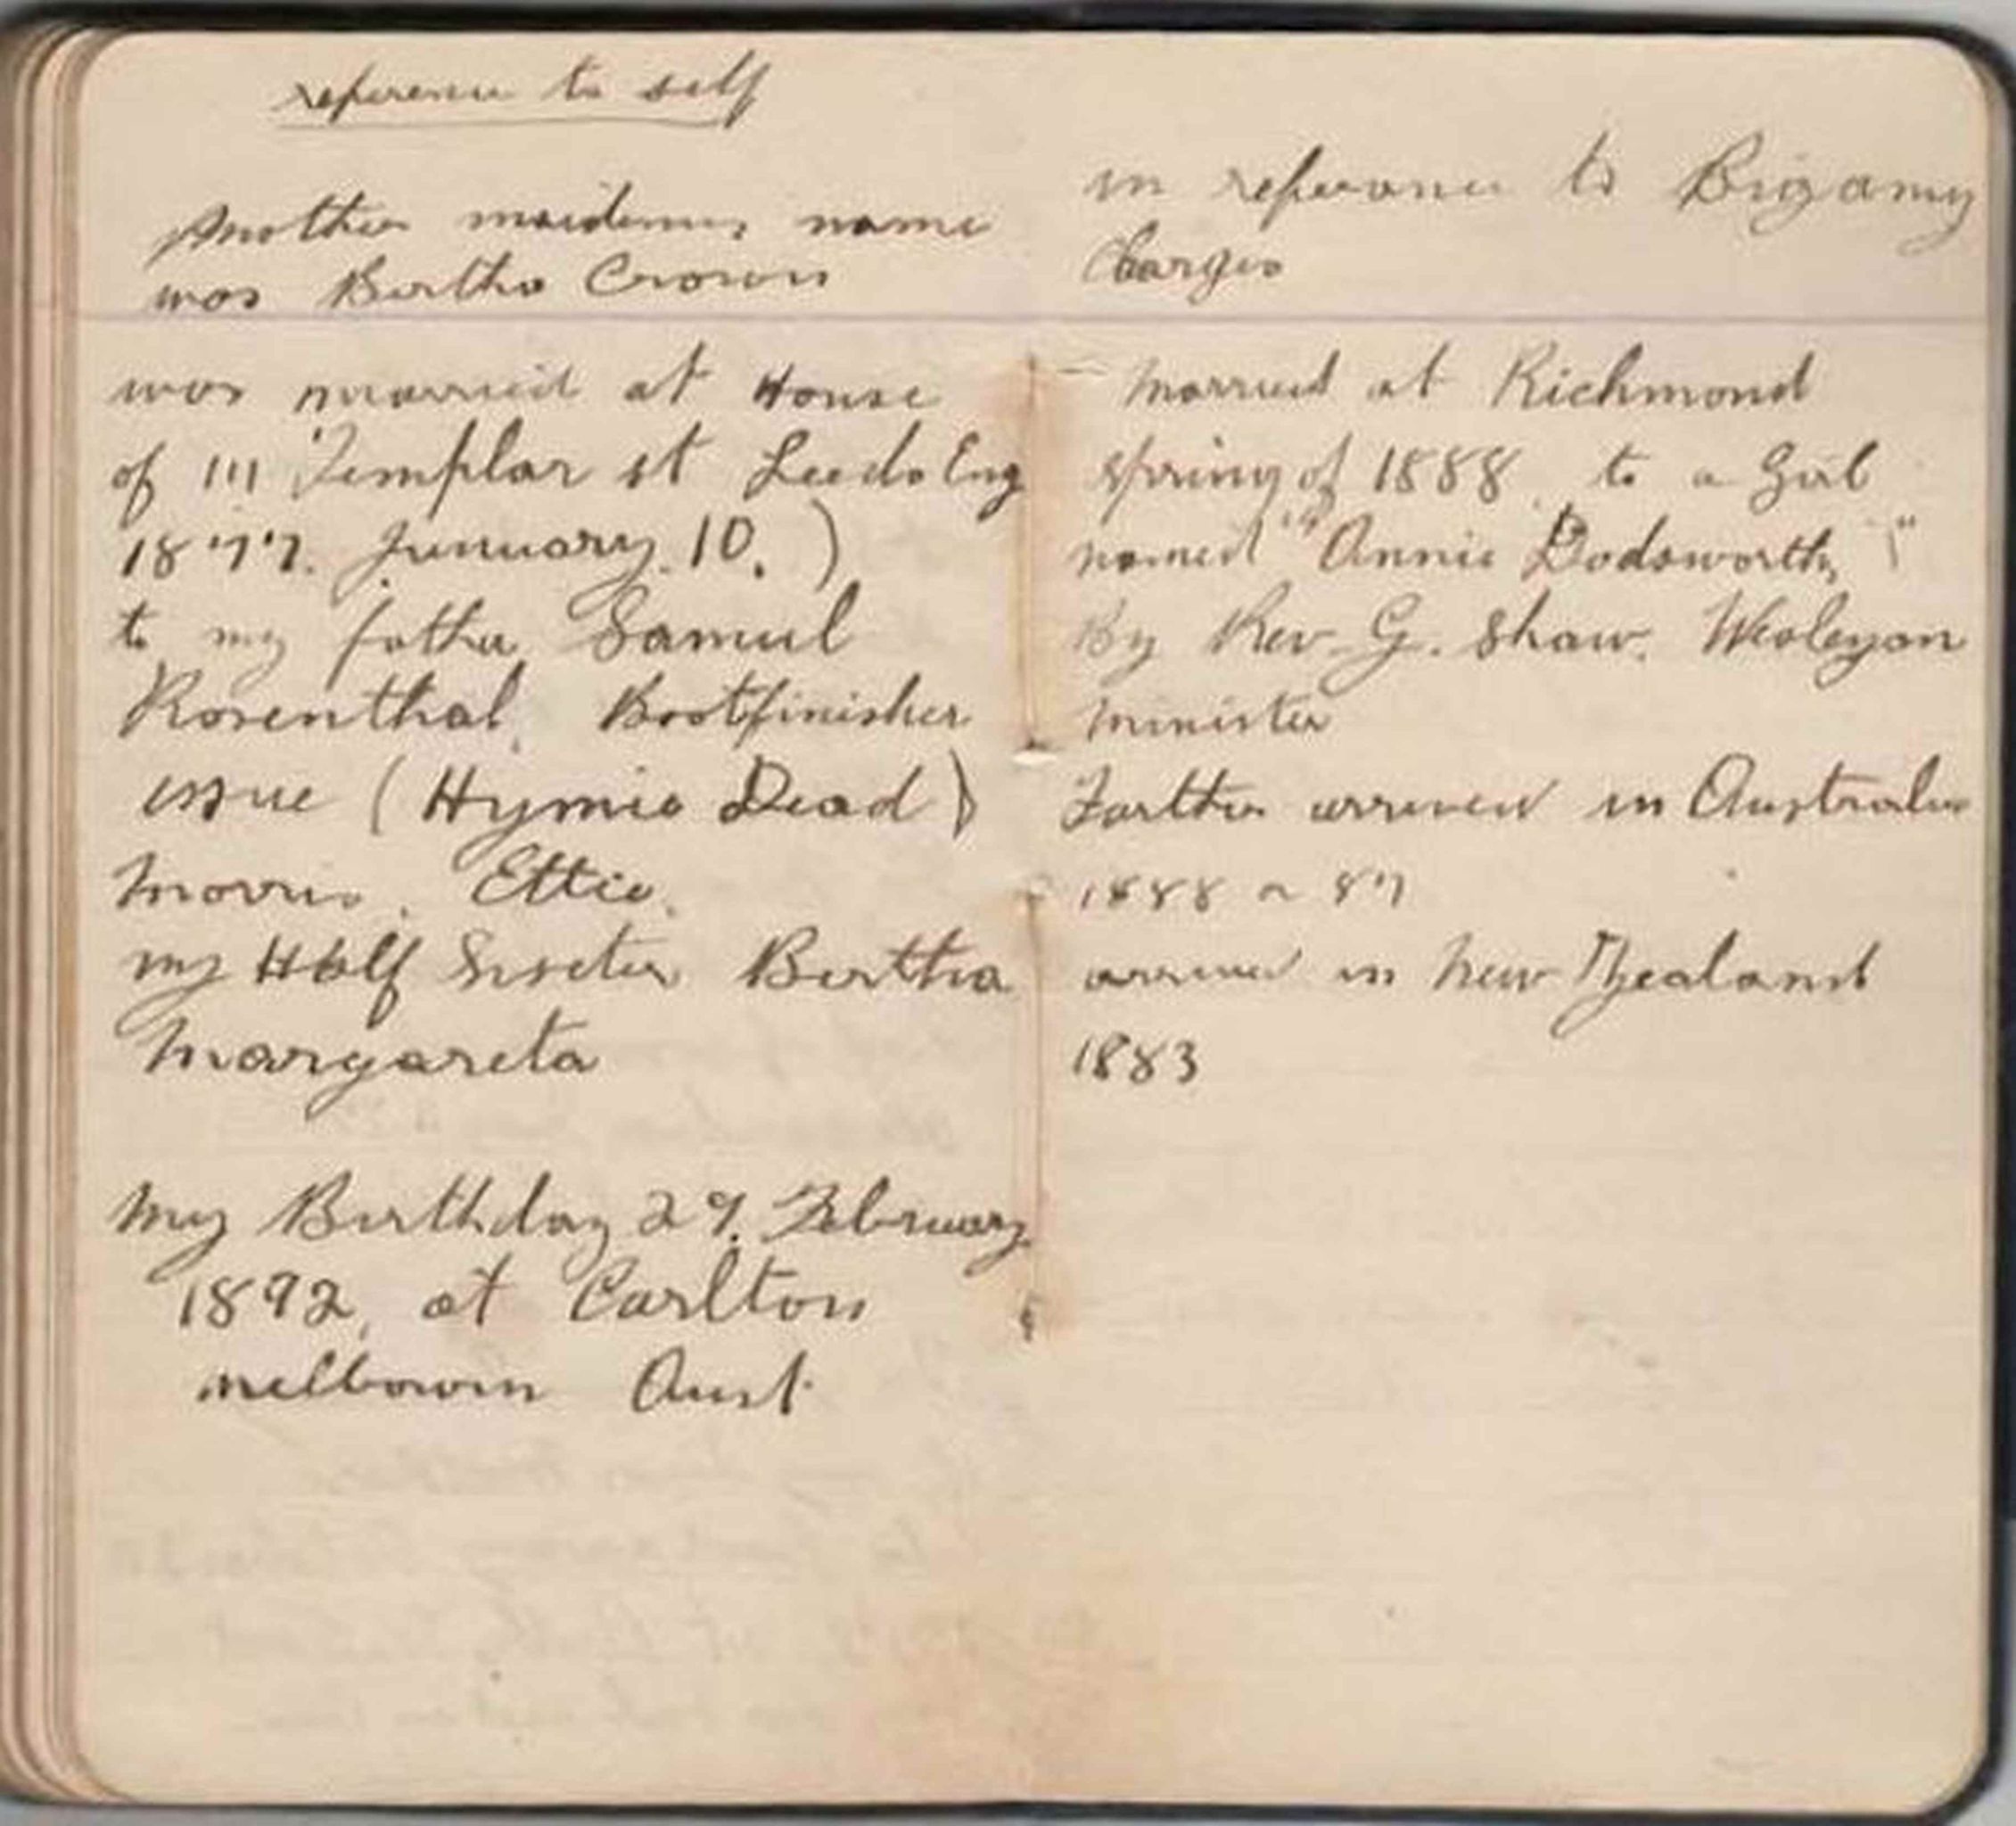 reference to self
Mother maidens name
was Bertha Crown
was married at House
of 111 Templar st Leeds Eng
1877. Junuary. 10. )
to my father Samuel
Rosenthal, Bootfinisher
issue ( Hymie Dead )
Morris. Ettie.
my Half Sister Bertha
Margareta
My Birthday 29. February
1892, at Carlton
melbourn Aust.
in referance to Bigamy
Charges
Married at Richmond
spring of 1888 to a Girl
named "Annie Dodsworth"
By Rev. G. Shaw. Wesleyan
Minister
Farther arrived in Australia
1888 or 87
arrived in New Zealand
1883